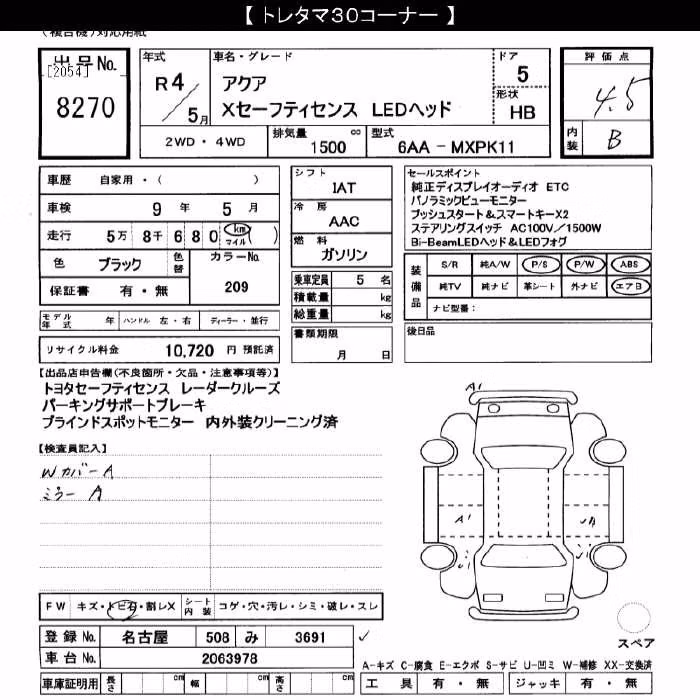 【 トレタマ30コーナー 】
(複合機)対応用紙
出品No.
[2054]
8270
年式
R4／5月
車名・グレード
アクア
Xセーフティセンス LEDヘッド
ドア
5
形状
HB
2WD・4WD
排気量
1500
cc
型式
6AA－MXPK11
評価点
4.5
内装
B
車歴 自家用・( )
車検 9年 5月
走行 5万 8千 6 8 0 (km マイル)
色 ブラック 色替
カラーNo.
209
保証書 有・無
モデル年式 年 ハンドル 左・右 ディーラー・並行
リサイクル料金 10,720 円 預託済
シフト
IAT
冷房
AAC
燃料
ガソリン
乗車定員 5 名
積載量 kg
総重量 kg
書類期限
月 日
セールスポイント
純正ディスプレイオーディオ ETC
パノラミックビューモニター
プッシュスタート＆スマートキーX2
ステアリングスイッチ AC100V／1500W
Bi-BeamLEDヘッド＆LEDフォグ
装備品
S/R 純A/W P/S P/W ABS
純TV 純ナビ 革シート 外ナビ エアB
ナビ型番：
後日品
【出品店申告欄(不良箇所・欠品・注意事項等)】
トヨタセーフティセンス レーダークルーズ
パーキングサポートブレーキ
ブラインドスポットモニター 内外装クリーニング済
【検査員記入】
Wカバー A
ミラー A
A1
A1
FW キズ・トビ石・割レX シート内装 コゲ・穴・汚レ・シミ・破レ・スレ
登録No. 名古屋 508 み 3691
車台No. 2063978
車庫証明用 長さ cm 幅 cm 高さ cm
スペア
A-キズ C-腐食 E-エクボ S-サビ U-凹ミ W-補修 XX-交換済
工具 有・無 ジャッキ 有・無